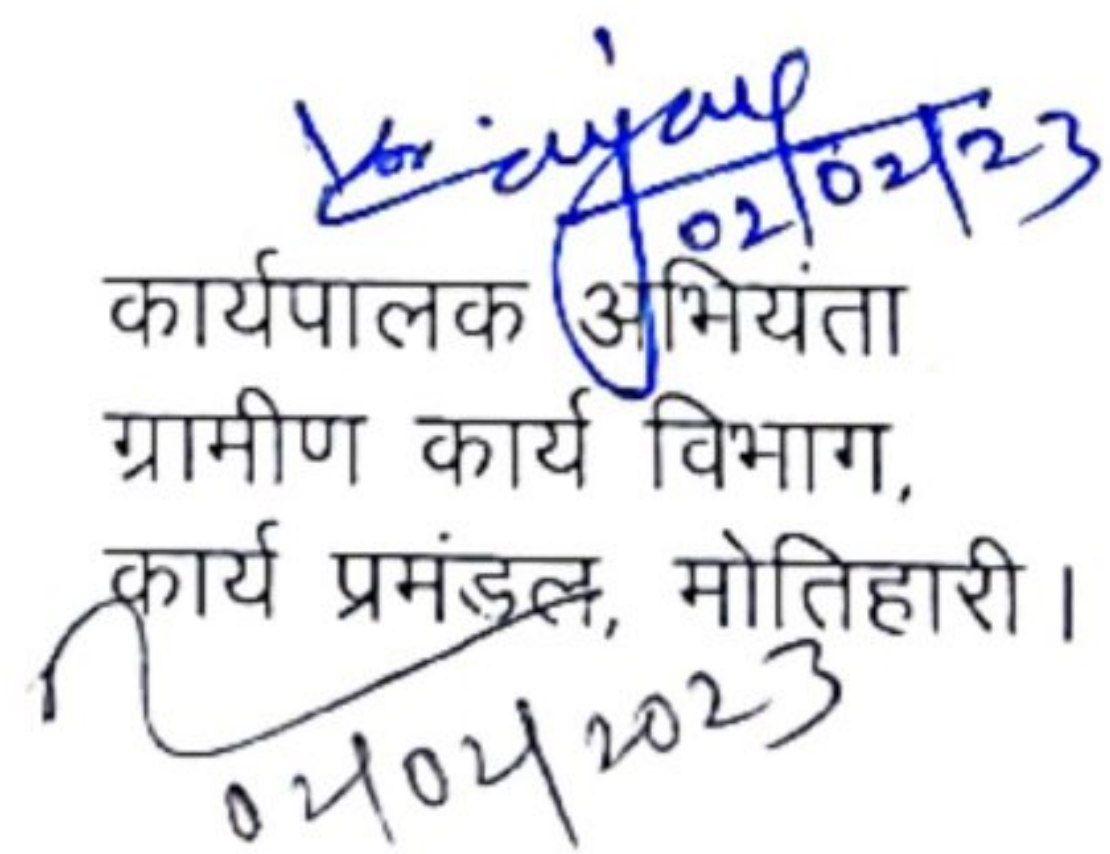 02/02/23
कार्यपालक अभियंता
ग्रामीण कार्य विभाग,
कार्य प्रमंडल, मोतिहारी।
02/02/2023